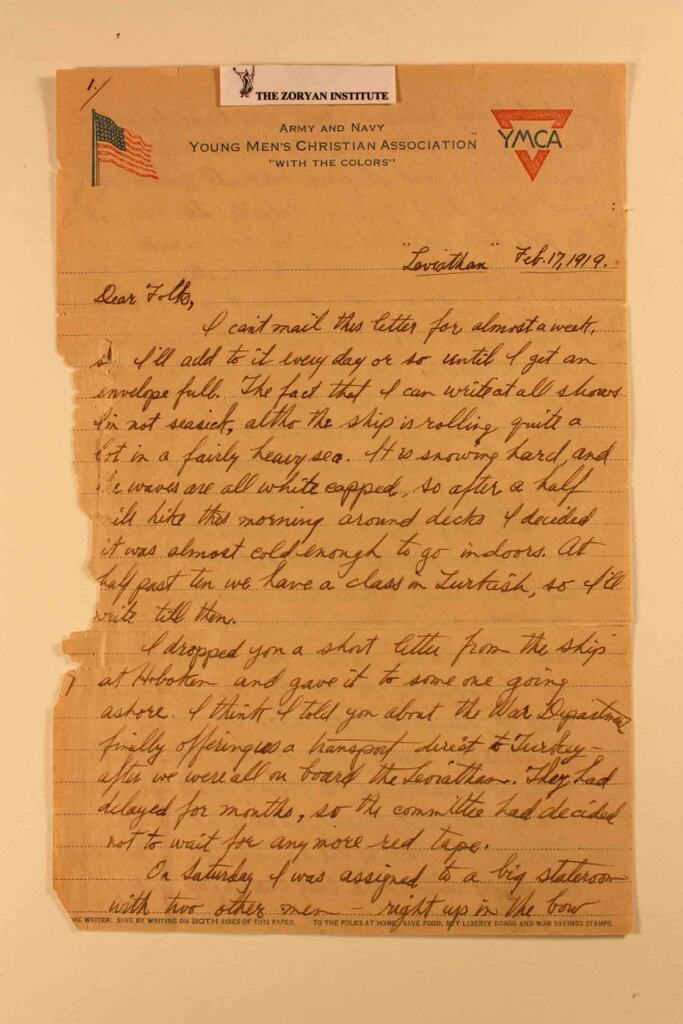 1./
THE ZORYAN INSTITUTE
ARMY AND NAVY
YOUNG MEN'S CHRISTIAN ASSOCIATION
"WITH THE COLORS"
YMCA
"Leviathan" Feb. 17, 1919.
Dear Folks,
I can't mail this letter for almost a week,
I'll add to it every day or so until I get an
envelope full. The fact that I can write at all shows
I'm not seasick, altho the ship is rolling quite a
lot in a fairly heavy sea. It is snowing hard, and
the waves are all white capped, so after a half
mile hike this morning around decks I decided
it was almost cold enough to go indoors. At
half past ten we have a class in Turkish, so I'll
write till then.
I dropped you a short letter from the ship
at Hoboken and gave it to some one going
ashore. I think I told you about the War Department
finally offering us a transport direct to Turkey –
after we were all on board the Leviathan. They had
delayed for months, so the committee had decided
not to wait for any more red tape.
On Saturday I was assigned to a big stateroom
with two other men – right up in the bow
THE WRITER: SAVE BY WRITING ON BOTH SIDES OF THIS PAPER. TO THE FOLKS AT HOME: SAVE FOOD, BUY LIBERTY BONDS AND WAR SAVINGS STAMPS.